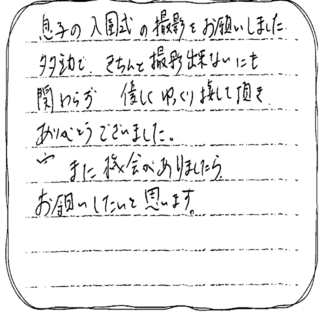 息子の入園式の撮影をお願いしました
多動で きちんと撮影出来ないにも
関わらず 優しくゆっくり接して頂き
ありがとうございました。
また機会がありましたら
お願いしたいと思います。